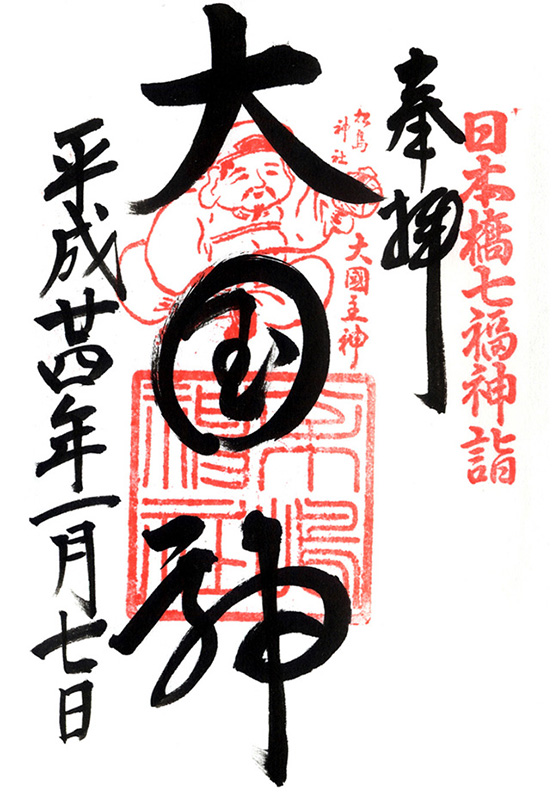 日本橋七福神詣
奉拝
松島
神社
大國主神
大国神
松嶋
神社
平成廿四年一月七日